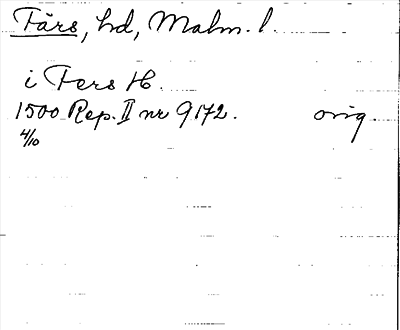 Färs, hd, Malm. l.
i Fers H.
1500 Rep. II nr 9172. orig.
4/10